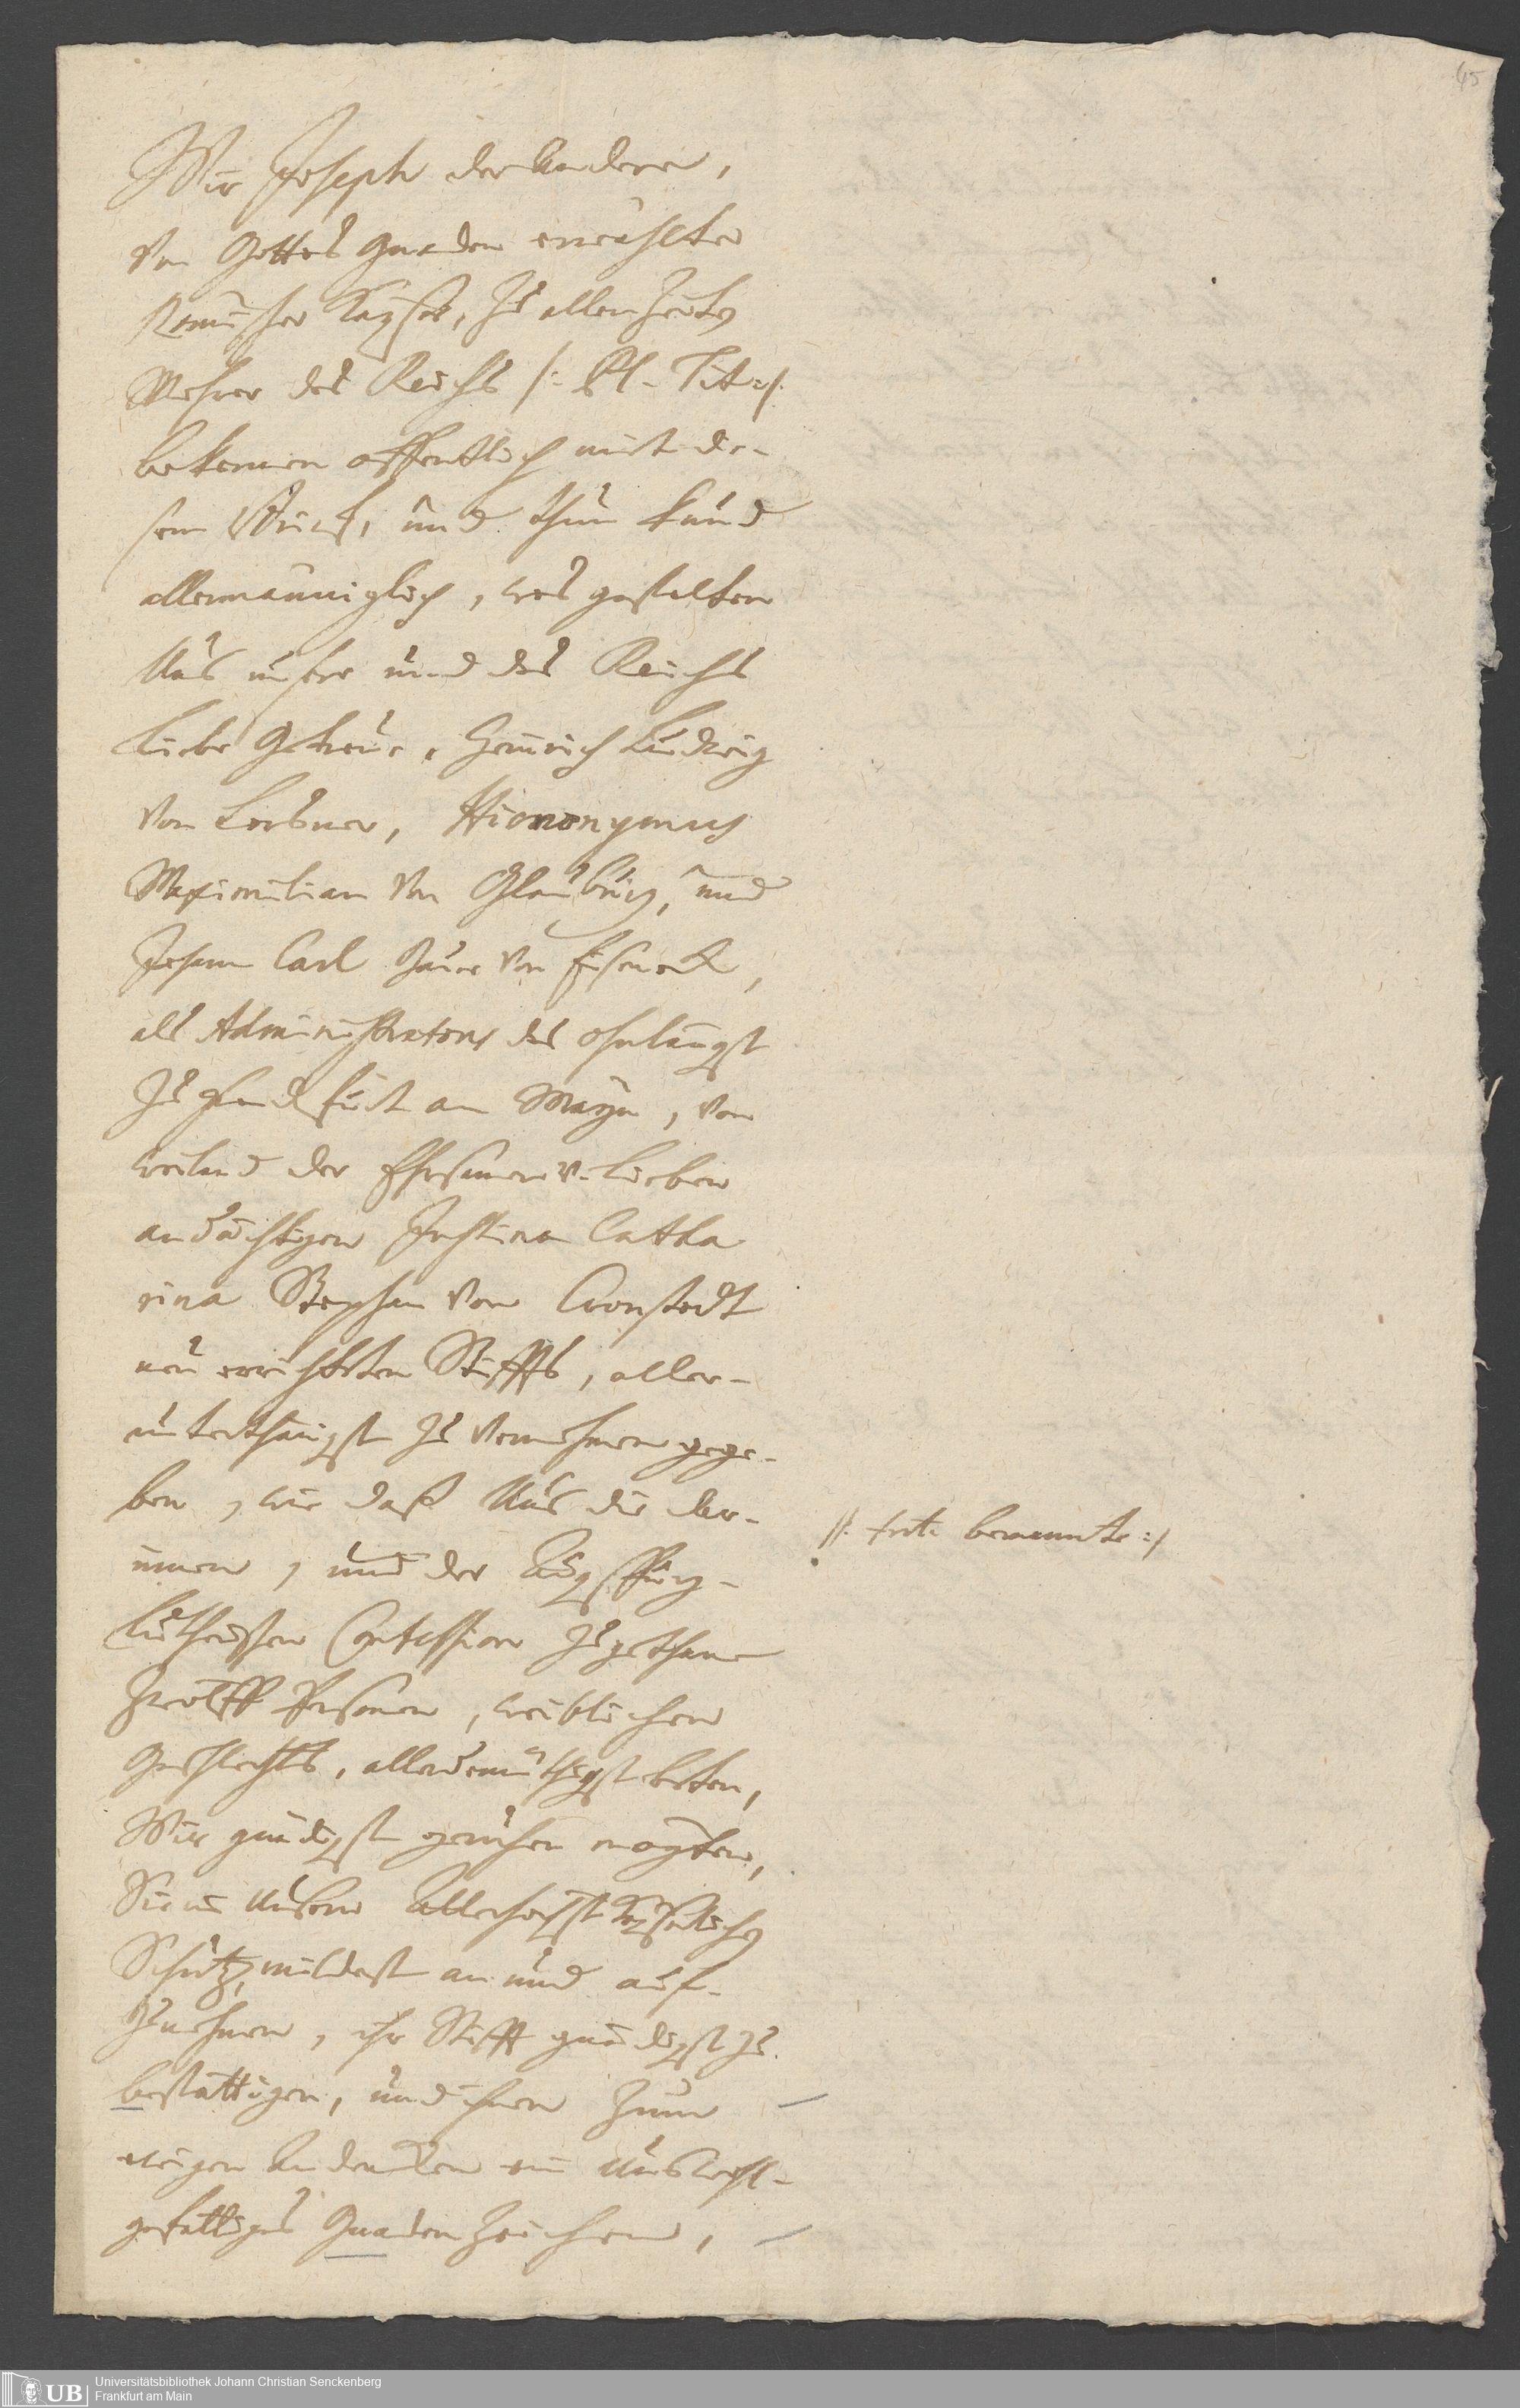 45
Wir Joseph der Andere,
von Gottes Gnaden erwählter
Römischer Kayser, zu allen Zeiten
Mehrer des Reichs /: Pl. Tit: /.
bekennen offentlich mit die-
sem Brief, und thun kund
allermänniglich, was gestalten
Uns unsere und des Reichs
Liebe Getreue, Heinrich Ludwig
von Lersner, Hieronymus
Maximilian von Glauburg, und
Johann Carl Baur von Eiseneck,
als Administratores des ohnlängst
zu Franckfurt am Mayn, von
weiland der Ehrsamen v. Lieben
andächtigen Justina Catha
rina Stephan von Cronstedt
neu errichteten Stiffts, aller-
unterthänigst zu vernehmen gege-
ben, wie daß Uns die dar-
innen, und der Augspurg-
/: benannte :/
Lutherischen Confession zugethane
Zwölff Personen, weiblichen
Geschlechts, allerdemüthigst beten,
Wir gnädigst geruhen mögten,
Sie in Unsern Allerhöchst Kayserlichen
Schutz, mildest an und auf-
zunehmen, ihr Stifft gnädigst zu
bestättigen, und ihnen zum
ewigen Andencken ein Uns wohl-
gefälliges Gnaden Zeichen,
UB
Universitätsbibliothek Johann Christian Senckenberg
Frankfurt am Main